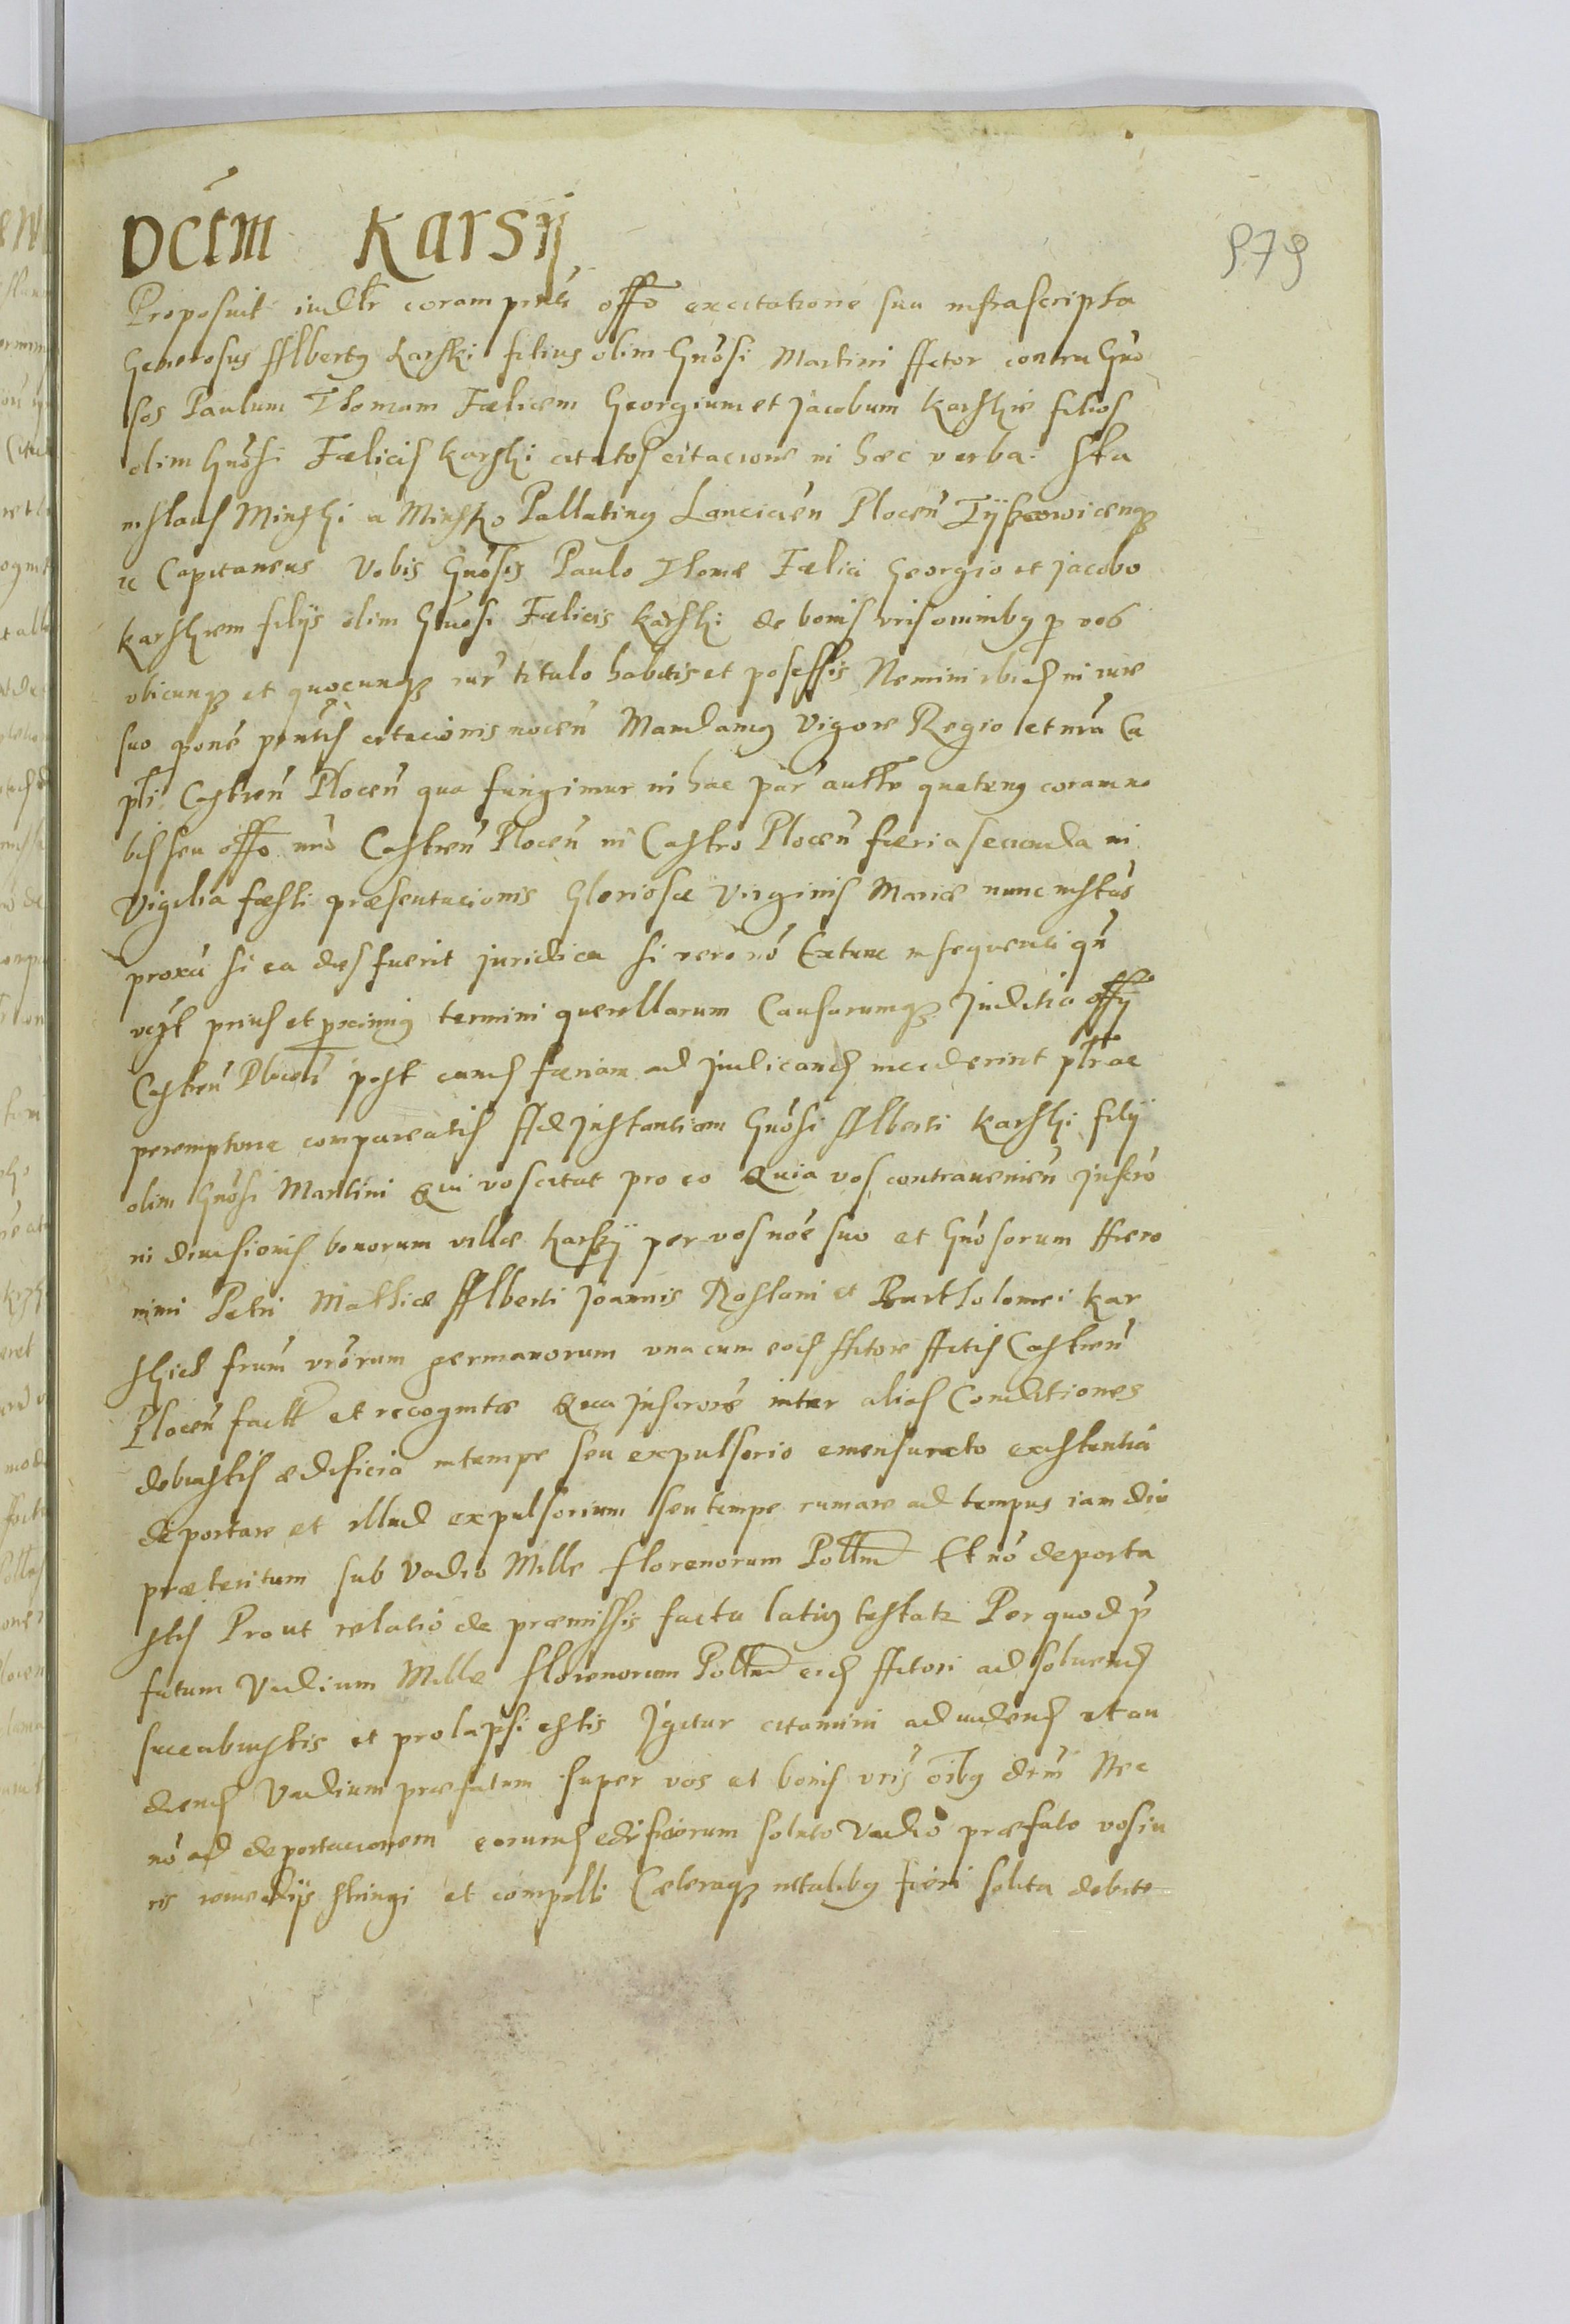 Dctm Karsij
579
Proposuit iudtr coram pnti offo excitatione sua infrascripta
Generosus Albertus Karski filius olim Gnosi Martini Actor contra Gno
sos Paulum Thomam Fœlicem Georgium et Jacobum Karskie filios
olim Gnosi Fœlicis Karski citatos citacione in hæc verba. Sta
nislaus Minski a Minsko Pallatinus Lancicien Plocen
ac Capitaneus Vobis Gnosis Paulo Thomæ Fœlici Georgio et Jacobo
Karskiem filijs olim Gnosi Fœlicis Karski de bonis vris omnibus p vob
vbicunq et quocunq iur titulo habitis et possessis Nemini in iure
suo pone pntis citacionis nocen Mandamus Vigore Regio et nra Ca
pli Castren Plocen qua fungimur in hac par autte quatenus coram no
bis seu offo nro Castren Plocen in Castro Plocen feria secunda in
Vigilia fæsti præsentacionis Gloriosæ Virginis Mariæ nunc instan
proxa si ea dies fuerit juridica si vero no Extunc insequenti qn
vczt prius et pximius termini querellarum Causarumq Juditia offij
Castren Plocen post eand feriam ad judicand inciderint pltr ac
peremptorie compareatis Ad Jnstantiam Gnosi Alberti Karski filij
olim Gnosi Martini Qui vos citat pro eo Quia vos contravenien Jnscro
ni diuisionis bonorum villæ Karszÿ per vos noe suo et Gnosorum Hiero
nimi Petri Mathiæ Alberti Joannis Rostani et Bartholomei Kar
skich frum vrorum germanorum vna cum eod Actore Actis Castren
Plocen fact et recognitæ Qua Jnscrone inter alias Conditiones
debuistis ædificia in tempe seu expulsorio emensurato existentia
deportare et illud expulsorium seu tempe rumare ad tempus iam diu
præteritum sub Vadio Mille florenorum Pollm Et no deporta
stis Prout relatio de præmissis facta latius testatr Per quod p
fatum Vadium Mille florenorum Pollm eid Actori ad soluend
succubuistis et prolapsi estis Jgitur citamini ad vidend et au
diend Vadium præfatum super vos et bonis vris oibus drm Nec
no ad deportacionem eorumd edificiorum soluto Vadio præfato vos iu
ris remedijs stringi et compelli Cæteraq in talibus fieri solita debite